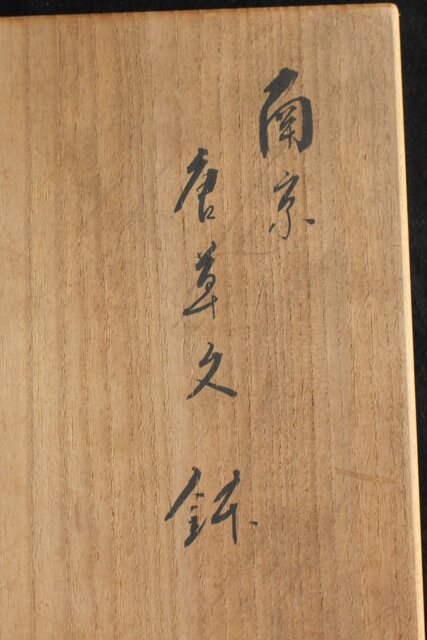 南京
唐草文鉢